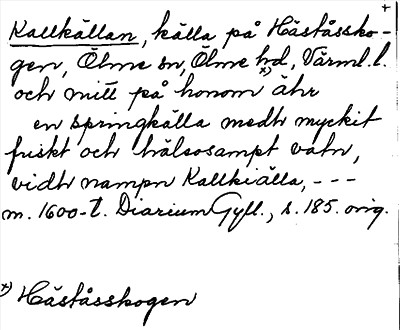 +
Kallkällan, källa på Håståssko-
gen, Ölme sn, Ölme hd, Värml. l.
och mitt på honom x) ähr
en springkälla medh myckit
friskt och hälsosampt vatn,
vidh nampn Kallkiälla, - - -
m. 1600-t. Diarium Gyll., s. 185. orig.
x) Håståsskogen